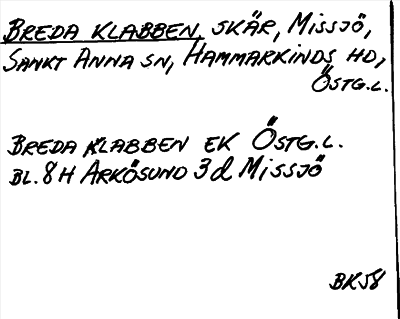 BREDA KLABBEN, SKÄR, MISSJÖ,
SANKT ANNA SN, HAMMARKINDS HD,
ÖSTG.L.
BREDA KLABBEN EK ÖSTG.L.
BL. 8H ARKÖSUND 3d MISSJÖ
BK58